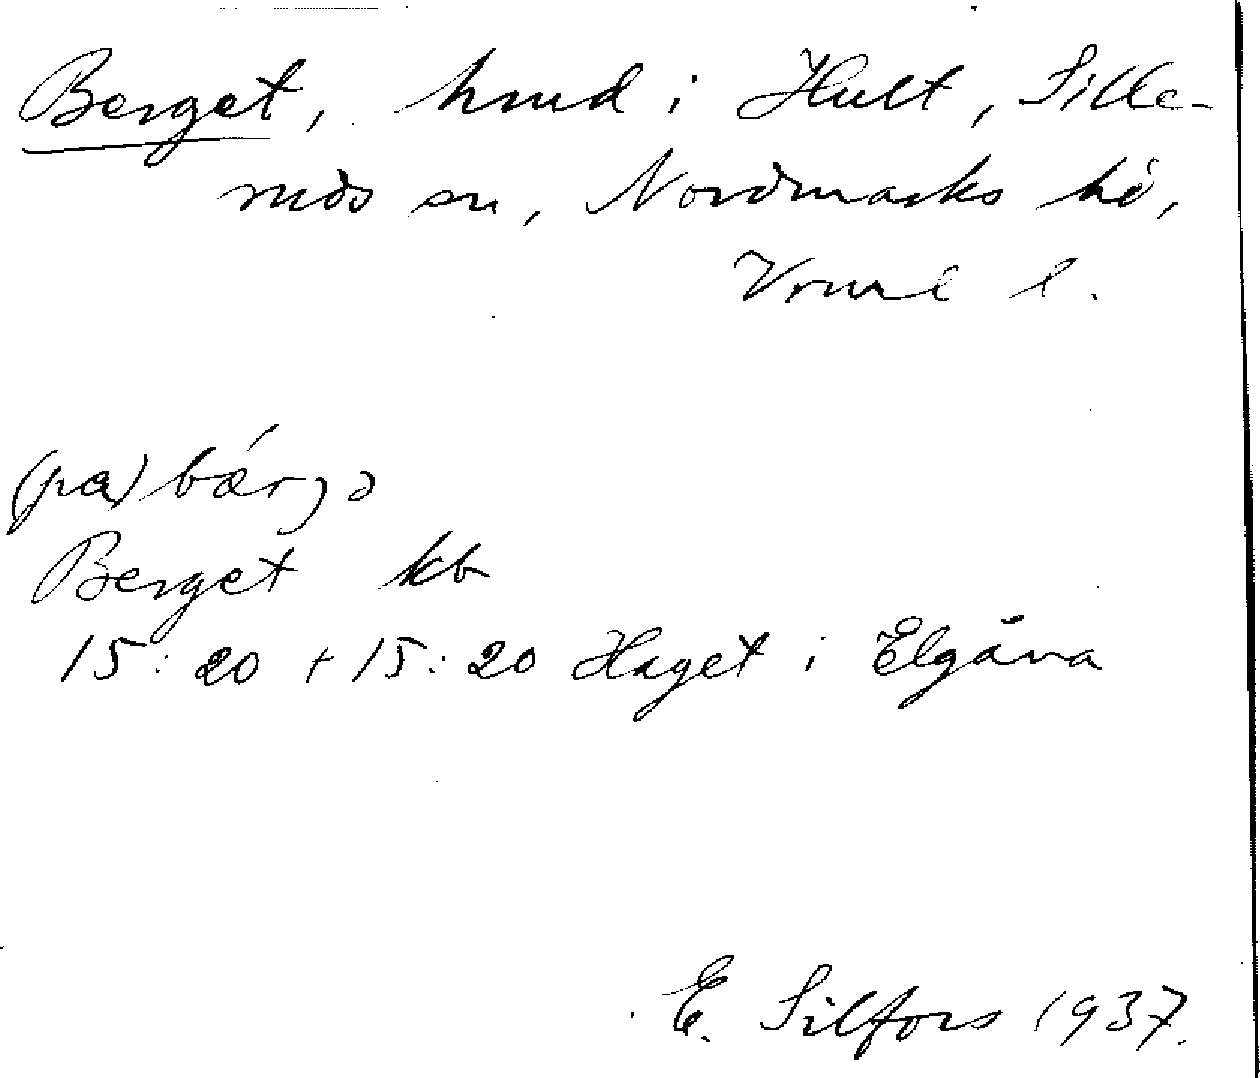 Berget, hmd i Hult, Sille-
ruds sn, Nordmarks hd,
Vrml l.
(pa) bǽrjə
Berget kb
15:20 + 15:20 Haget i Elgåna
E. Silfors 1937.